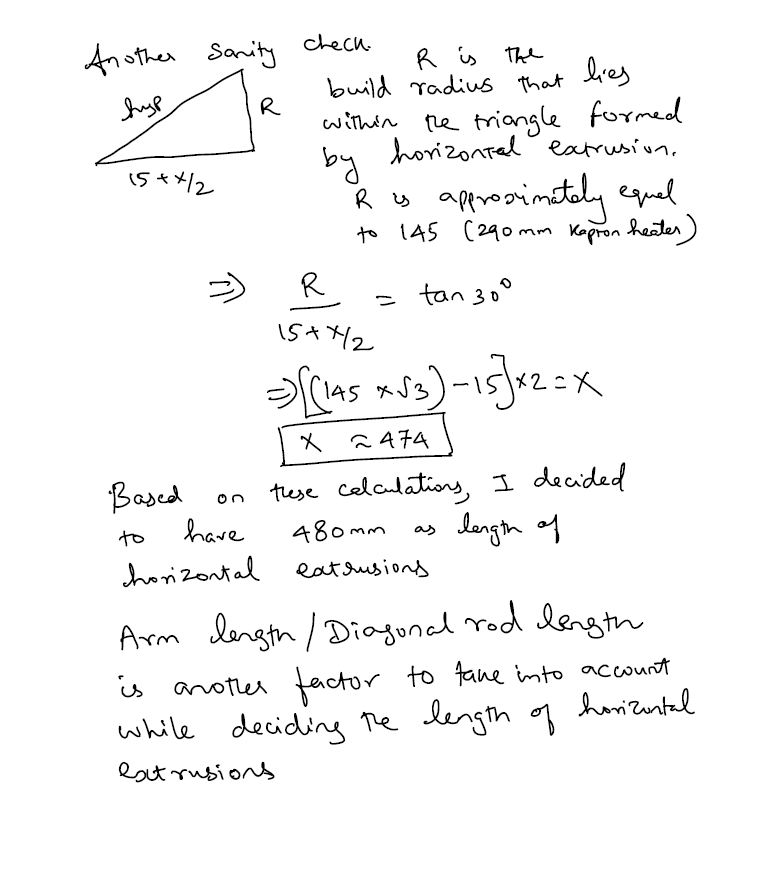 Another Sanity check.
R is the
build radius that lies
within the triangle formed
by horizontal extrusion.
R is approximately equal
to 145 (290mm Kapton heater)
hyp
R
15 + x/2
⇒ R / (15 + x/2) = tan 30°
⇒ [(145 × √3) - 15] × 2 = X
X ≈ 474
Based on these calculations, I decided
to have 480mm as length of
horizontal extrusions
Arm length / Diagonal rod length
is another factor to take into account
while deciding the length of horizontal
extrusions